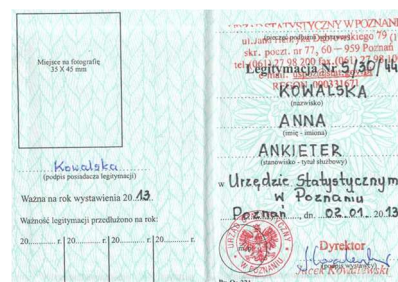 Miejsce na fotografię
35 X 45 mm
Kowalska
(podpis posiadacza legitymacji)
Ważna na rok wystawienia 20 13
Ważność legitymacji przedłużono na rok:
20........... r. 20........... r. 20........... r. 20........... r.
STATYSTYCZNY W POZNANIU
ul. Jana Henryka Dąbrowskiego 79
skr. poczt. nr 77, 60 – 959 Poznań
tel. (061) 27 98 200 fax. (061) 27 98 10
REGON 000331671
Legitymacja Nr 5/30/44
KOWALSKA
(nazwisko)
ANNA
(imię - imiona)
ANKIETER
(stanowisko - tytuł służbowy)
w Urzędzie Statystycznym
w Poznaniu
Poznań, dn. 02.01. 2013
URZĄD STATYSTYCZNY W POZNANIU
Dyrektor
(podpis wystawcy)
Jacek Kowalewski